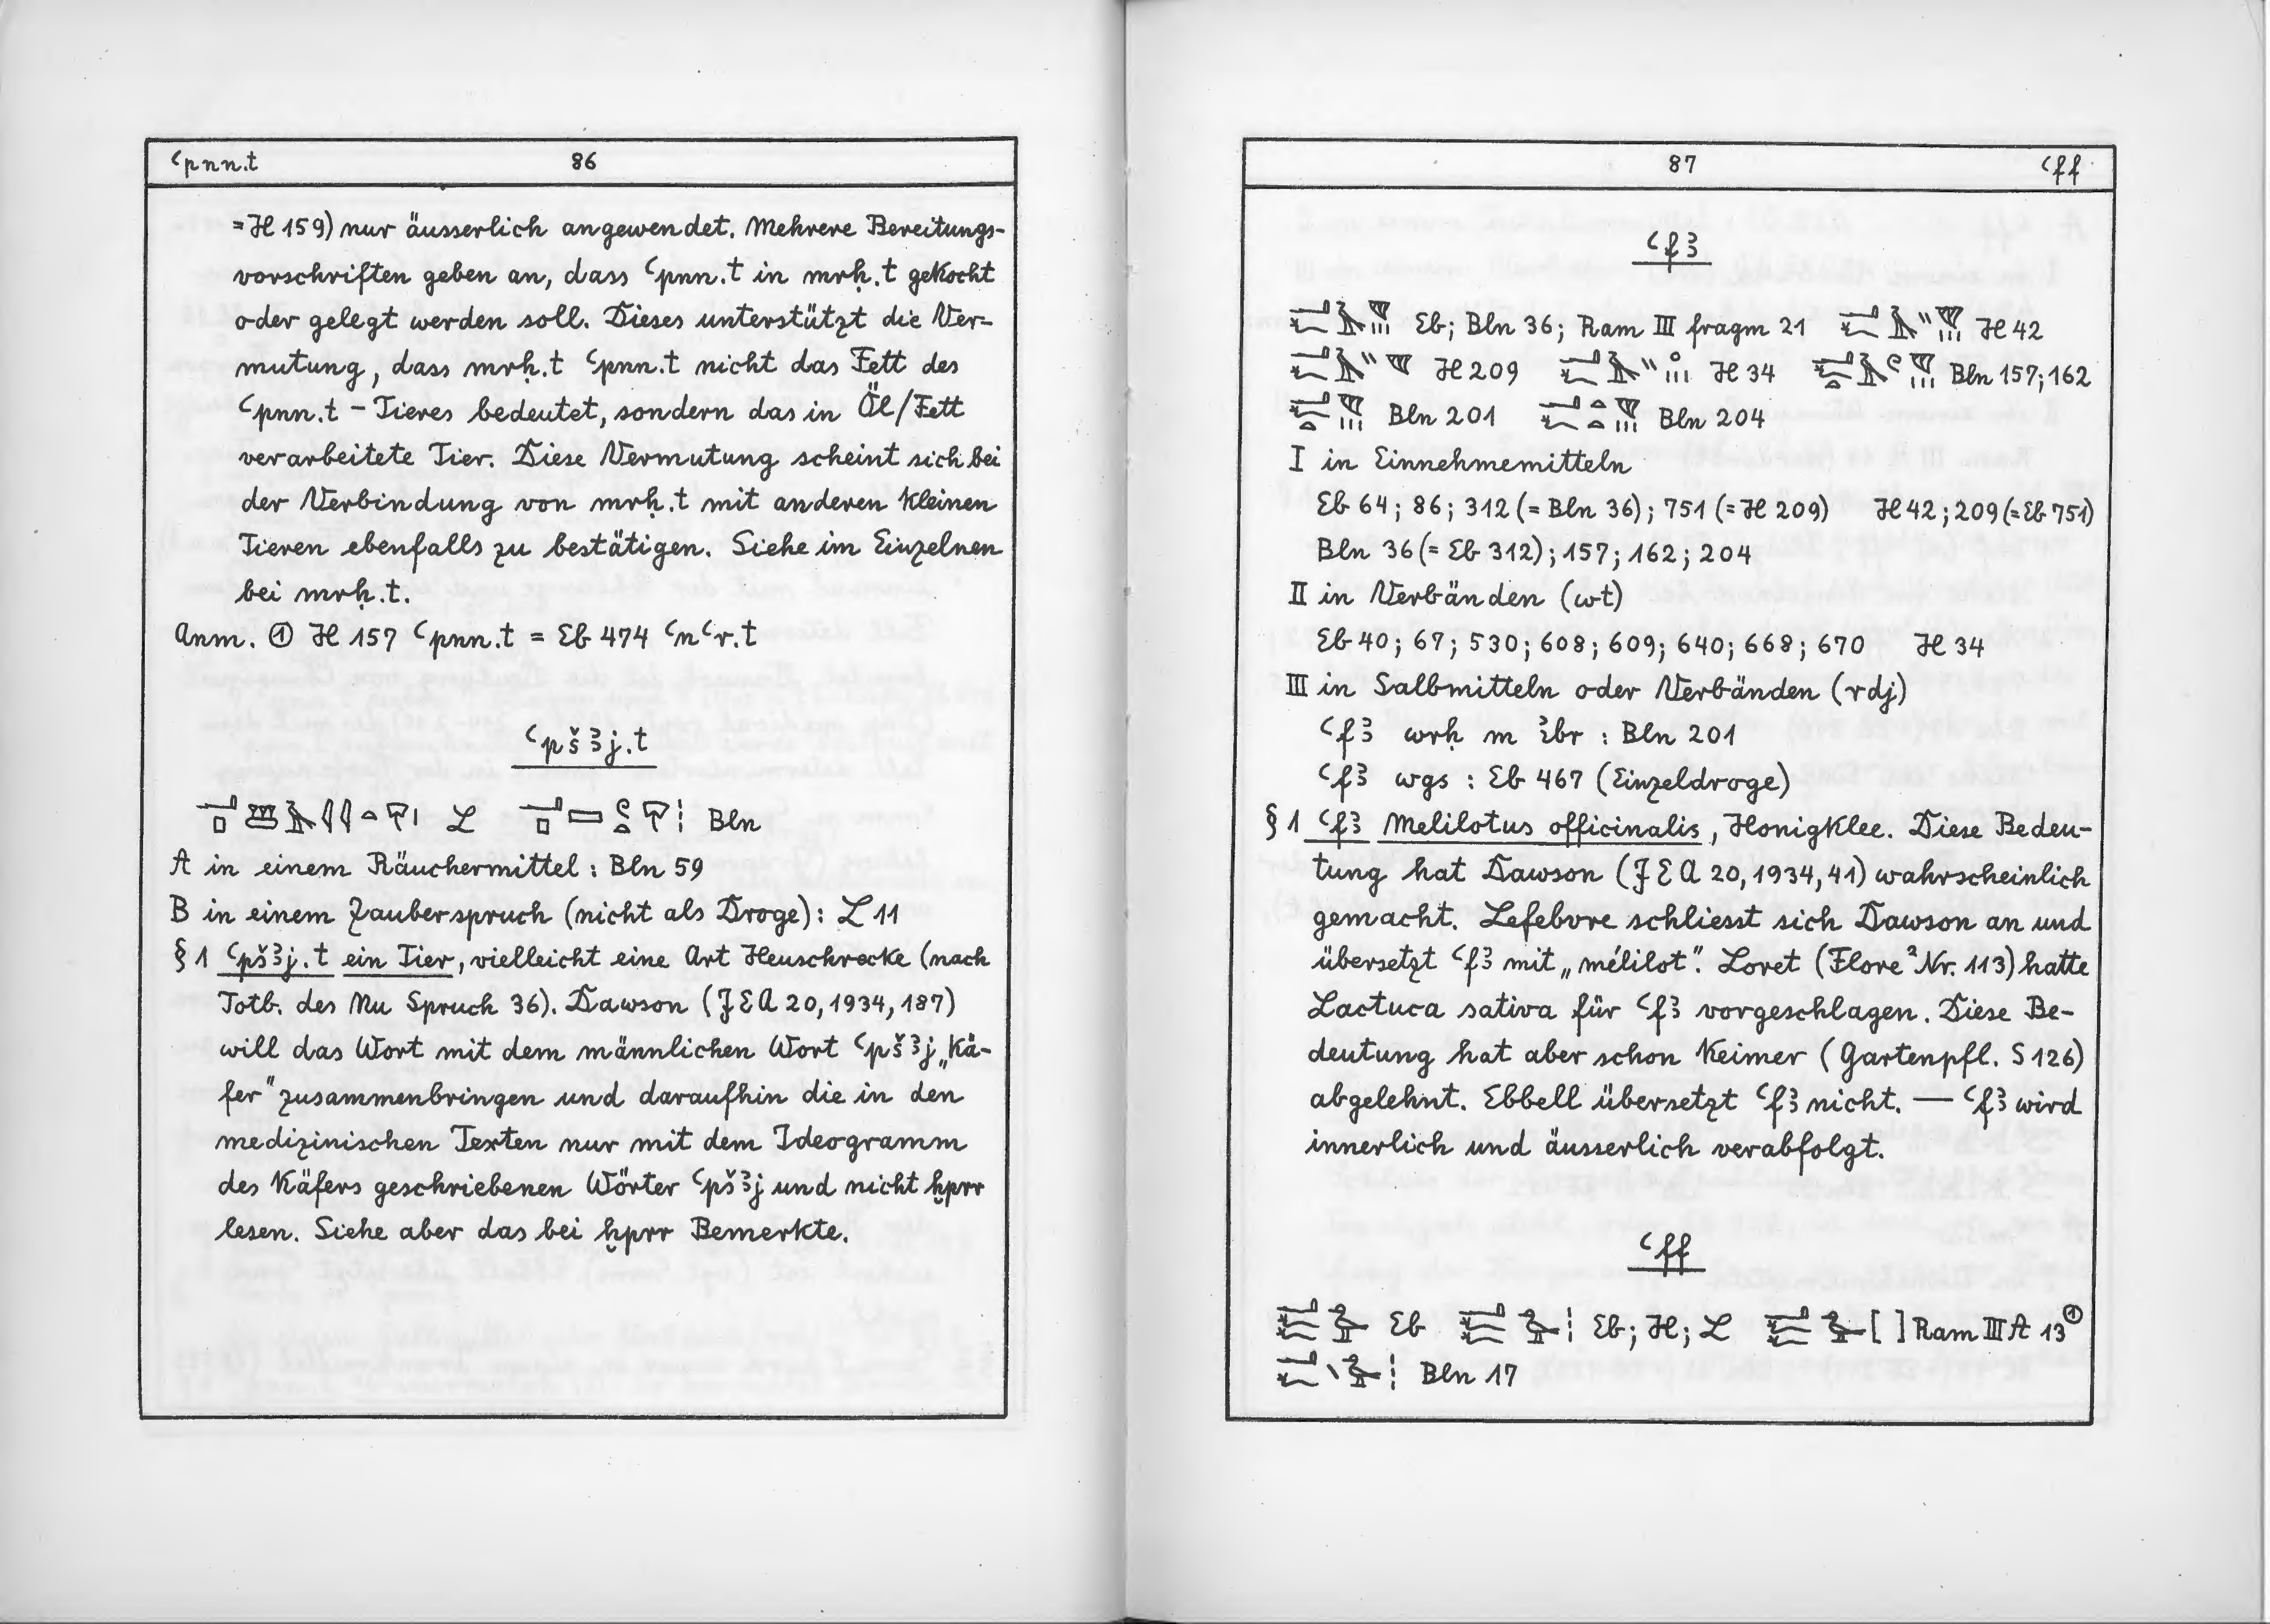 ꜥpnn.t 86
=H 159) nur äusserlich angewendet. Mehrere Bereitungs-
vorschriften geben an, dass ꜥpnn.t in mrḥ.t gekocht
oder gelegt werden soll. Dieses unterstützt die Ver-
mutung, dass mrḥ.t ꜥpnn.t nicht das Fett des
ꜥpnn.t – Tieres bedeutet, sondern das in Öl/Fett
verarbeitete Tier. Diese Vermutung scheint sich bei
der Verbindung von mrḥ.t mit anderen kleinen
Tieren ebenfalls zu bestätigen. Siehe im Einzelnen
bei mrḥ.t.
Anm. ① H 157 ꜥpnn.t = Eb 474 ꜥnꜥr.t
ꜥpšꜣj.t
L Bln
A in einem Räuchermittel : Bln 59
B in einem Zauberspruch (nicht als Droge) : L 11
§ 1 ꜥpšꜣj.t ein Tier, vielleicht eine Art Heuschrecke (nach
Totb. des Nu Spruch 36). Dawson (JEA 20, 1934, 187)
will das Wort mit dem männlichen Wort ꜥpšꜣj „Kä-
fer" zusammenbringen und daraufhin die in den
medizinischen Texten nur mit dem Ideogramm
des Käfers geschriebenen Wörter ꜥpšꜣj und nicht ḫprr
lesen. Siehe aber das bei ḫprr Bemerkte.
87 ꜥff
ꜥfꜣ
Eb; Bln 36; Ram III fragm 21 H 42
H 209 H 34 Bln 157; 162
Bln 201 Bln 204
I in Einnehmemitteln
Eb 64; 86; 312 (= Bln 36); 751 (= H 209) H 42; 209 (= Eb 751)
Bln 36 (= Eb 312); 157; 162; 204
II in Verbänden (wt)
Eb 40; 67; 530; 608; 609; 640; 668; 670 H 34
III in Salbmitteln oder Verbänden (rdj)
ꜥfꜣ wrḥ m ꜣbr : Bln 201
ꜥfꜣ wgs : Eb 467 (Einzeldroge)
§ 1 ꜥfꜣ Melilotus officinalis, Honigklee. Diese Bedeu-
tung hat Dawson (JEA 20, 1934, 41) wahrscheinlich
gemacht. Lefebvre schliesst sich Dawson an und
übersetzt ꜥfꜣ mit „mélilot". Loret (Flore² Nr. 113) hatte
Lactuca sativa für ꜥfꜣ vorgeschlagen. Diese Be-
deutung hat aber schon Keimer (Gartenpfl. S 126)
abgelehnt. Ebbell übersetzt ꜥfꜣ nicht. — ꜥfꜣ wird
innerlich und äusserlich verabfolgt.
ꜥff
Eb Eb; H; L [ ] Ram III A 13 ①
Bln 17